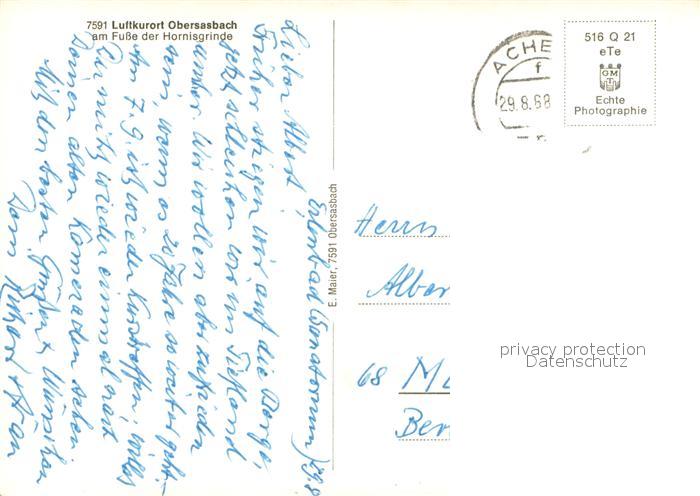 7591 Luftkurort Obersasbach
am Fuße der Hornisgrinde
Lieber Albert,
Früher stiegen wir auf die Berge,
jetzt schleichen wir im Tiefland
umher. Wir wollen aber zufrieden
sein, wenn es 20 Jahre so weiter geht.
Am 7.9. ist wieder
Du mußt wieder einmal
Deinen alten Kameraden sehen.
Mit den besten Grüßen u. Wünschen
Dein Richard + Frau
E. Maier, 7591 Obersasbach
ACHE
f
29.8.68
516 Q 21
eTe
GM
Echte
Photographie
Herrn
Alber
68 M
Ber
privacy protection
Datenschutz